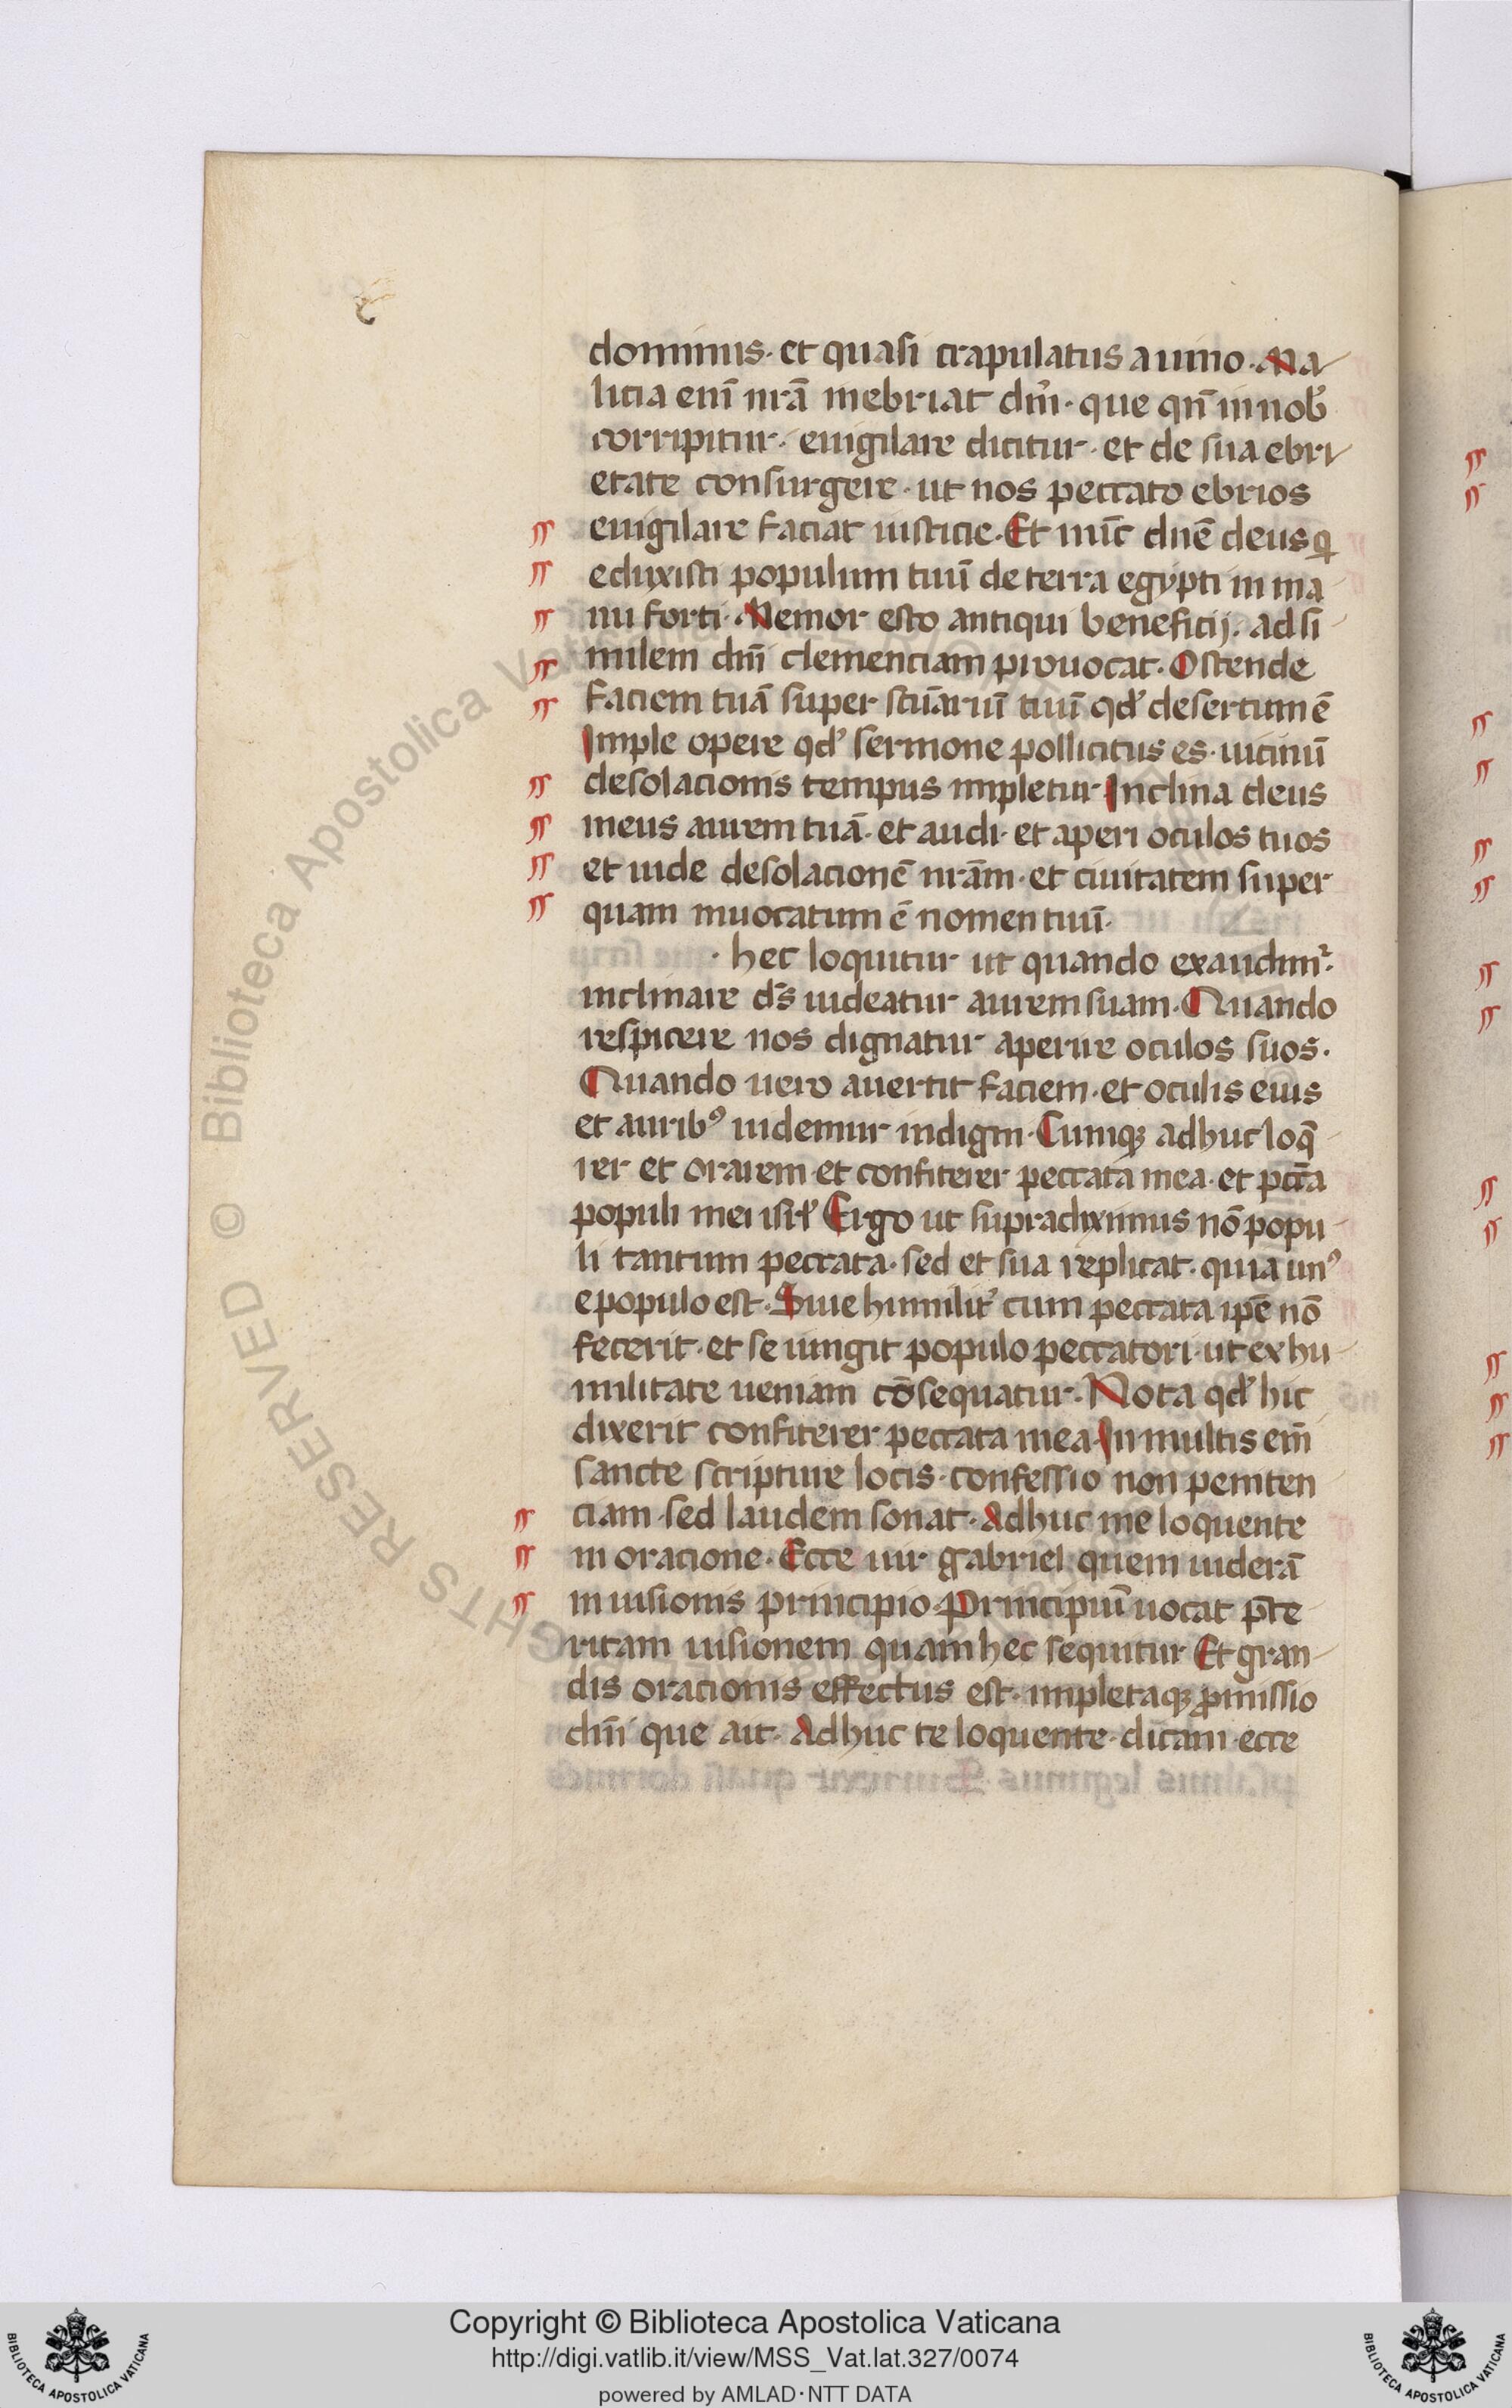 dominus· et quasi crapulatus a uino· Ma
licia enī nrā inebriat dm̄· que qn̄ in nob̄
corripitur· euigilare dicitur· et de sua ebri
etate consurgere· ut nos peccato ebrios
euigilare faciat iusticie· Et nūc dn̄e deus q
eduxisti populum tuū de terra egypti in ma
nu forti· Memor esto antiqui beneficij· ad si
milem dn̄i clemenciam prouocat· Ostende
faciem tuā super scūariū tuū qd̓ desertum ē
Imple opere qd̓ sermone pollicitus es· uicinū
desolacionis tempus impletur Inclina deus
meus aurem tuā· et audi· et aperi oculos tuos
et uide desolacionē nrām· et ciuitatem super
quam inuocatum ē nomen tuū·
· hec loquitur ut quando exaudimr̄·
inclinare ds̄ uideatur aurem suam· Quando
respicere nos dignatur aperire oculos suos·
Quando uero auertit faciem· et oculis eius
et aurib⁹ uidemur indigni· Cumqꝫ adhuc loq̄
rer et orarem· et confiterer peccata mea· et pcc̄a
populi mei isrl̓ Ergo ut supradiximus nō popu
li tantum peccata· sed et sua replicat· quia un⁹
e populo est· Siue humilit̓ cum peccata ip̄e nō
fecerit· et se iungit populo peccatori· ut ex hu
militate ueniam cōsequatur· Nota qd̓ hic
dixerit confiterer peccata mea· In multis enī
sancte scripture locis· confessio non peniten
ciam· sed laudem sonat· Adhuc me loquente
in oracione· Ecce uir gabriel quem uiderā
in uisionis principio· Principiū uocat p̄te
ritam uisionem quam hec sequitur Et gran
dis oracionis effectus est· impletaqꝫ ꝓmissio
dn̄i que ait· Adhuc te loquente· dicam· ecce
Copyright © Biblioteca Apostolica Vaticana
http://digi.vatlib.it/view/MSS_Vat.lat.327/0074
powered by AMLAD·NTT DATA